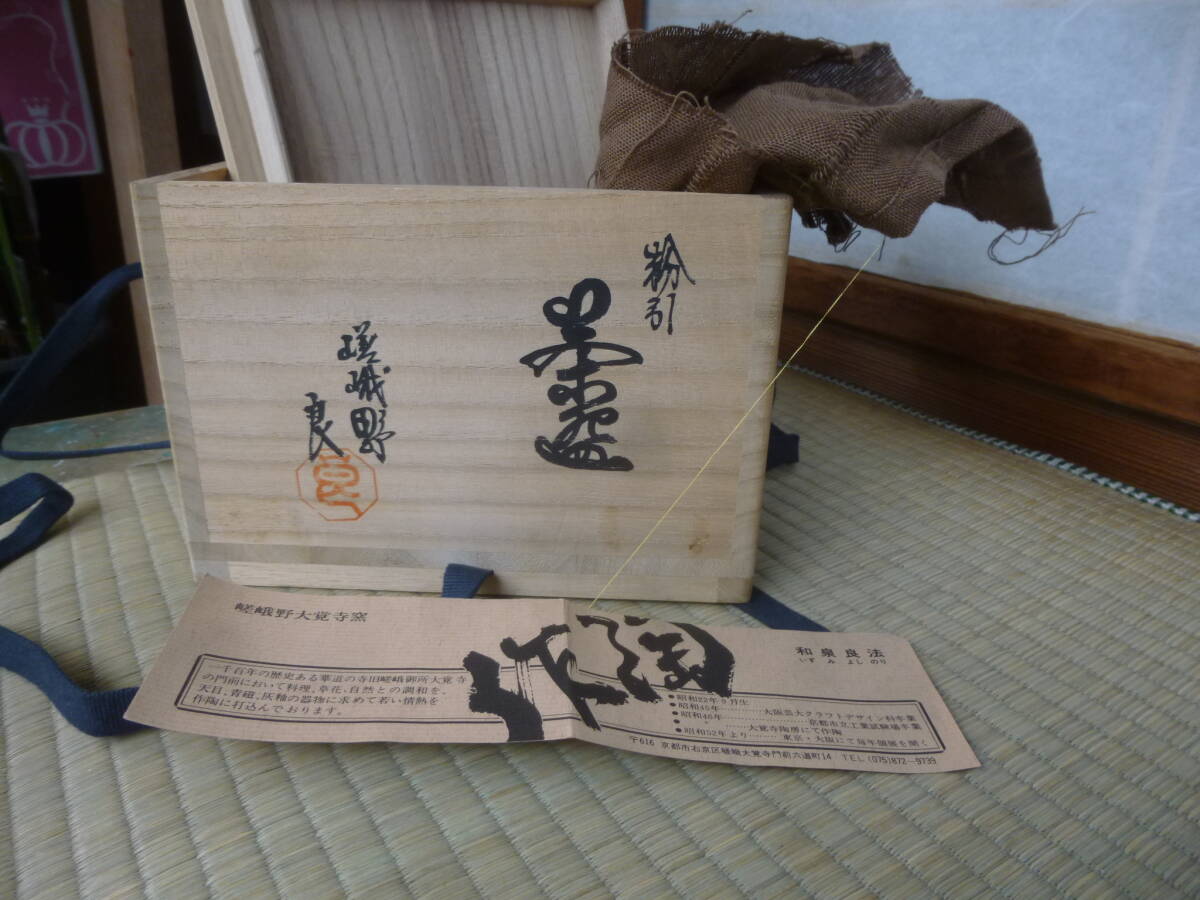 粉引
茶碗
嵯峨野
良
嵯峨野大覚寺窯
一千百年の歴史ある華道の寺旧嵯峨御所大覚寺
の門前において料理、草花、自然との調和を、
天目、青磁、灰釉の器物に求めて若い情熱を
作陶に打込んでおります。
作陶
和泉良法
いずみ よしのり
●昭和22年9月生
●昭和45年………大阪芸大クラフトデザイン科卒業
●昭和46年………京都市立工業試験場卒業
〃………大覚寺陶房にて作陶
●昭和52年より………東京・大阪にて毎年個展を開く
〒616 京都市右京区嵯峨大覚寺門前六道町14 TEL(075)872-9739